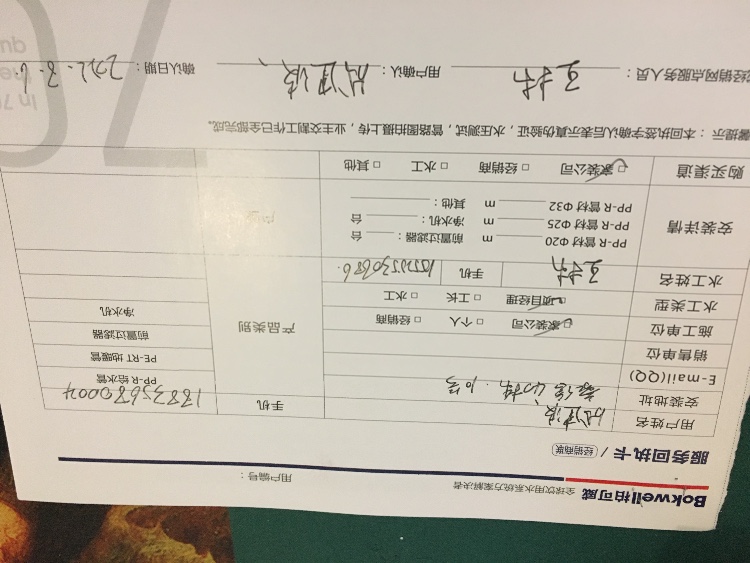 Bokwell柏可威 全球饮用水系统方案解决者 用户编号：
服务回执卡 / 经销商联
用户姓名 手机 18835680004
安装地址 10号
E-mail(QQ) PP-R 给水管
销售单位 PE-RT 地暖管
施工单位 □ 家装公司 □ 个人 □ 经销商 产品类别 前置过滤器
水工类型 □ 项目经理 □ 工长 □ 水工 净水机
水工姓名 王林 手机
安装详情 PP-R 管材 Φ20 m 前置过滤器： 台
PP-R 管材 Φ25 m 净水机： 台
PP-R 管材 Φ32 m 其他：
购买渠道 □ 家装公司 □ 经销商 □ 水工 □ 其他
馨提示：本回执签字确认后表示真伪验证，水压测试，管路图拍图上传，业主交割工作已全部完成。
经销网点服务人员： 王林 用户确认： 确认日期： 2022.3.6